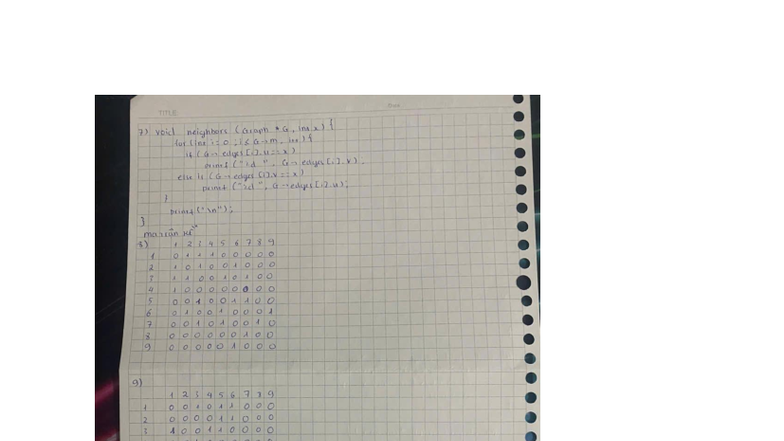 TITLE
7) void neighbors (Graph * G, int x) {
for (int i = 0, i ≤ G→m, i++) {
if (G→ edges [i].u == x)
printf ("%d ", G→ edges [i].v).
else if (G→ edges [i].v == x)
printf ("%d ", G→edges [i].u);
}
printf ("\n");
}
8)
1 2 3 4 5 6 7 8 9
1 0 1 1 1 0 0 0 0 0
2 1 0 1 0 0 1 0 0 0
3 1 1 0 0 1 0 1 0 0
4 1 0 0 0 0 0 0 0 0
5 0 0 1 0 0 1 1 0 0
6 0 1 0 0 1 0 0 0 1
7 0 0 1 0 1 0 0 1 0
8 0 0 0 0 0 0 1 0 0
9 0 0 0 0 0 1 0 0 0
9)
1 2 3 4 5 6 7 8 9
1 0 0 1 0 1 1 0 0 0
2 0 0 0 0 1 1 0 0 0
3 1 0 0 1 1 0 0 0 0